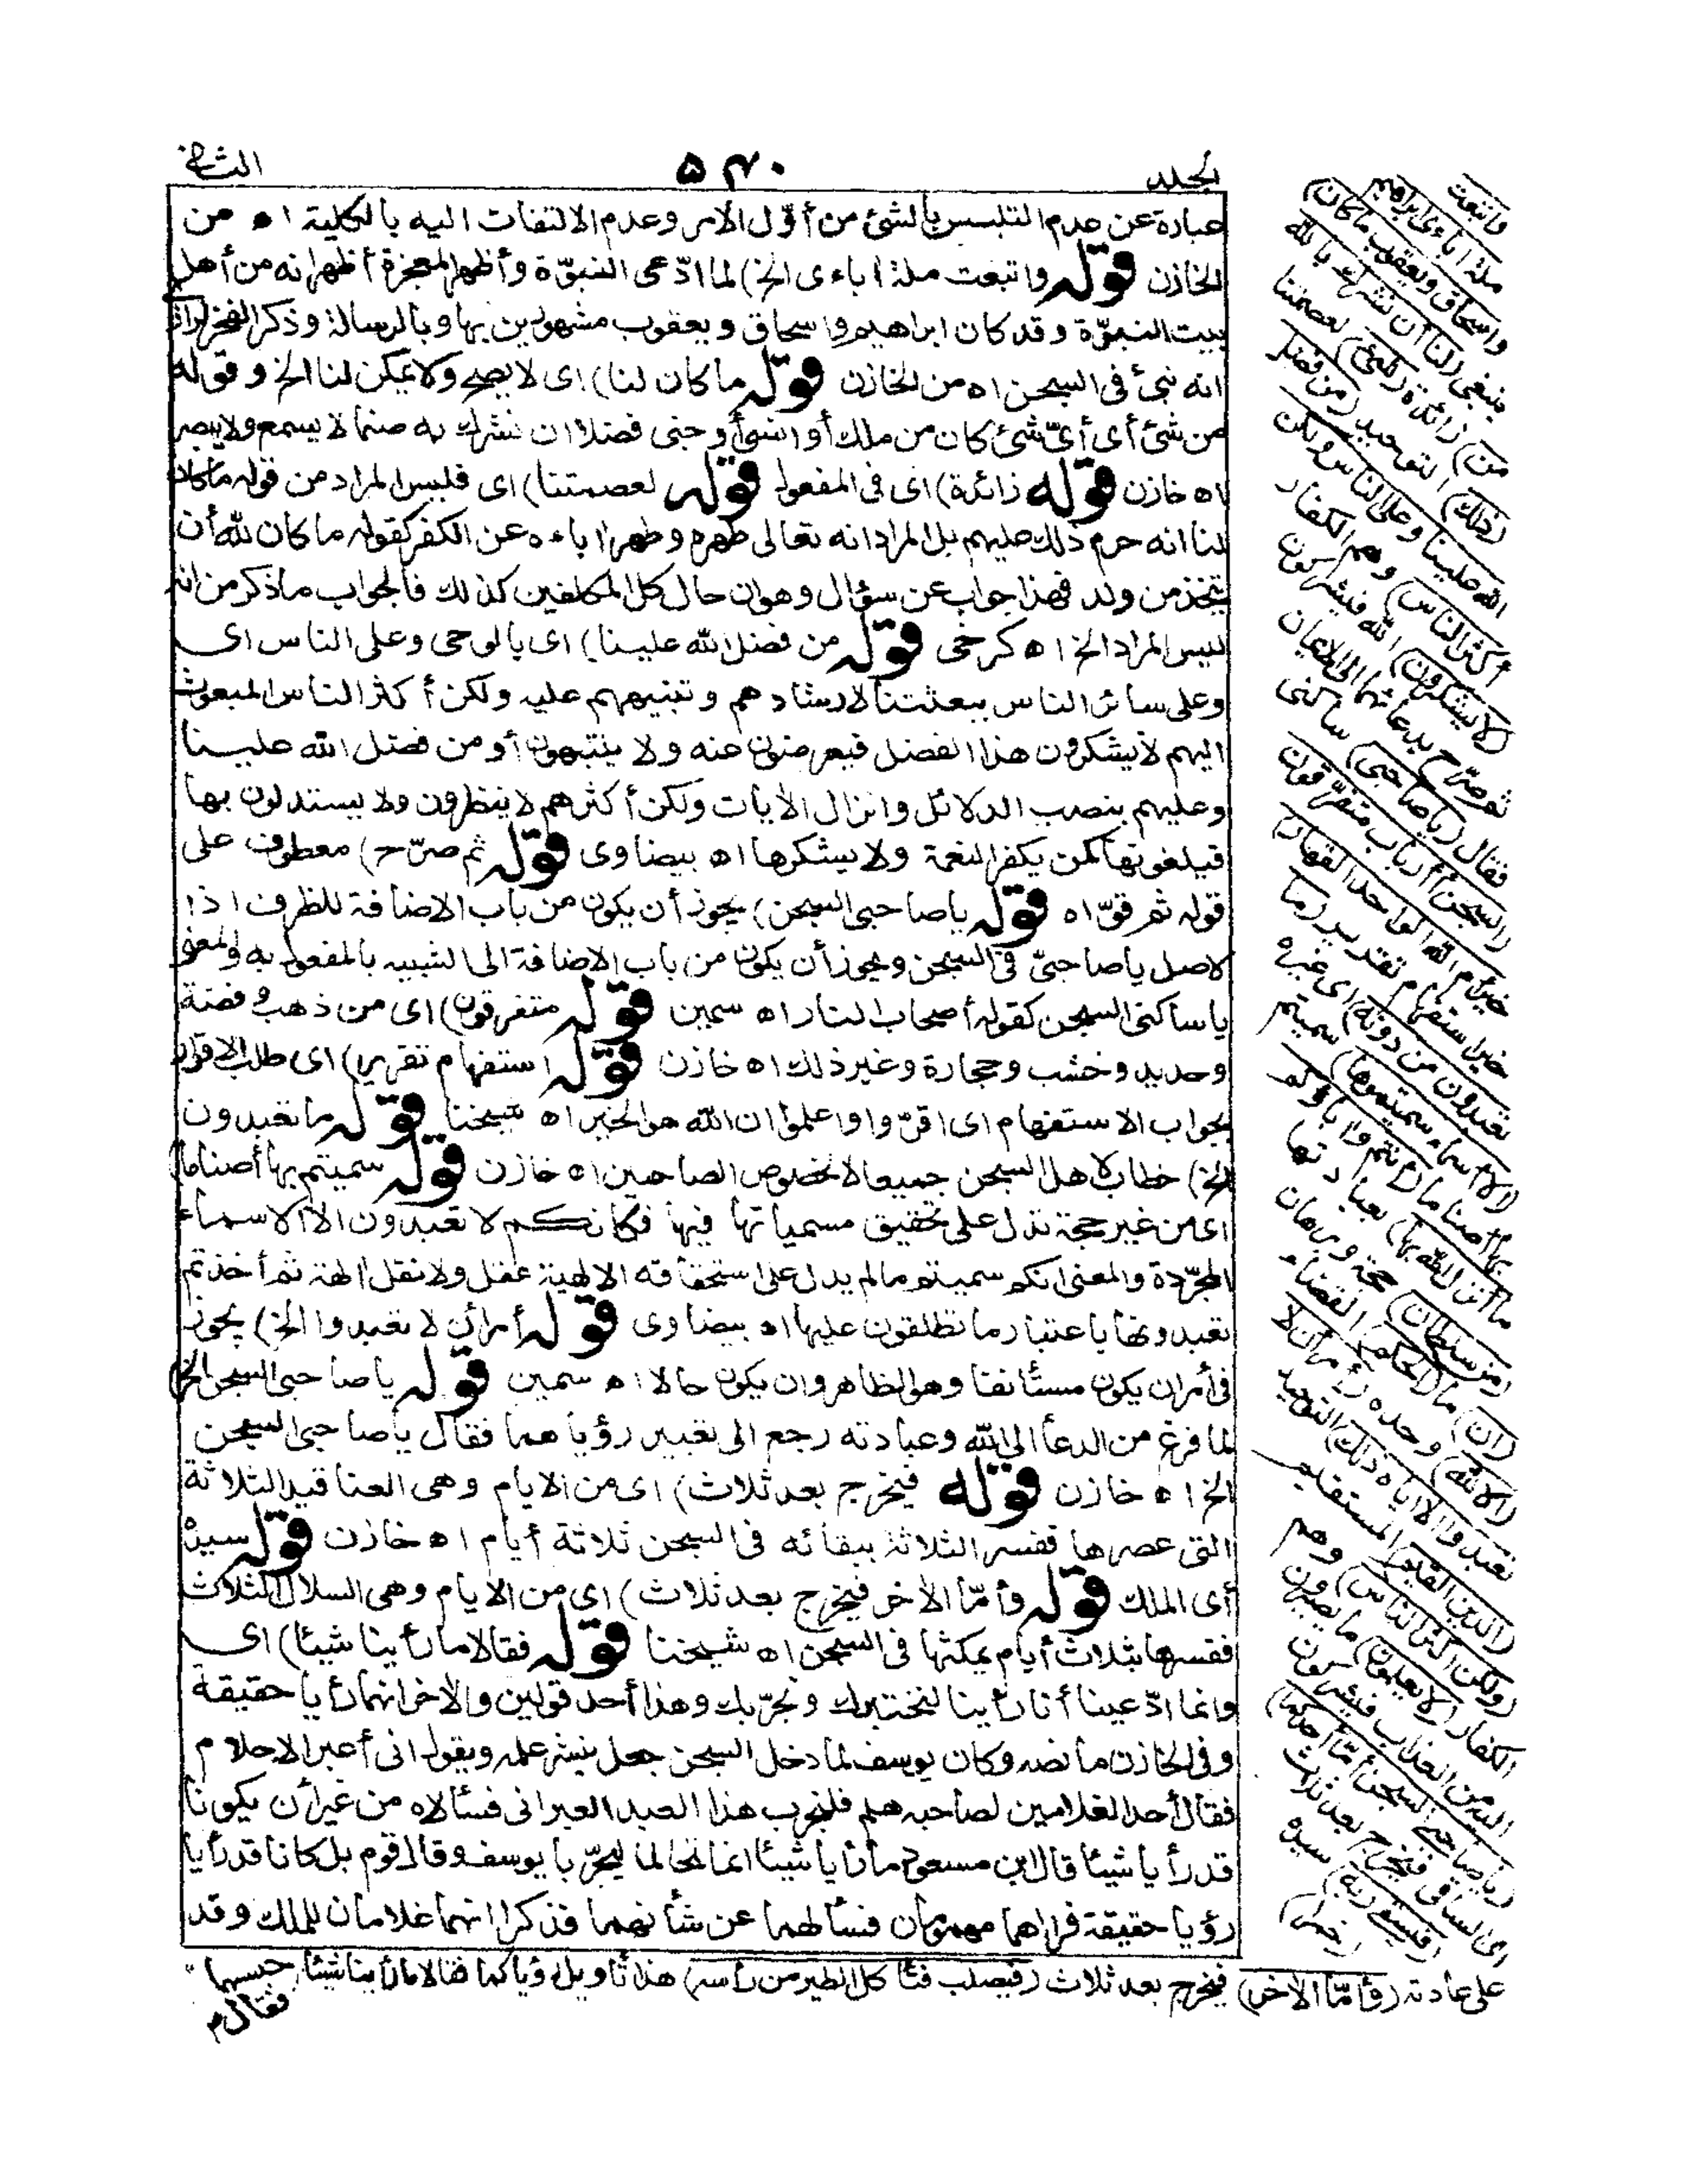 الجلد
٥٤٠
الثانى
عبارة عن عدم التلبس بالشئ من أوّل الامر وعدم الالتفات اليه بالكلية اه من
الخازن قوله واتبعت ملة اباءى الخ) لما ادّعى النبوّة وأظهر المعجزة أظهر انه من أهل
بيت النبوّة وقد كان ابراهيم واسحاق ويعقوب مشهورين بها وبالرسالة وذكر الفخر الرازى
انه نبئ فى السجن اه من الخازن قوله ما كان لنا) اى لا يصح ولا يمكن لنا الخ وقوله
من شئ أى أىّ شئ كان من ملك أو انسىّ أو جنى فضلا ان نشرك به صنما لا يسمع ولا يبصر
اه خازن قوله زائدة) اى فى المفعول قوله لعصمتنا) اى فليس المراد من قوله ما كان
لنا انه حرم ذلك عليهم بل المراد انه تعالى طهره وطهر اباءه عن الكفر كقوله ما كان لله أن
يتخذ من ولد فهذا جواب عن سؤال وهو ان حال كل المكلفين كذلك فالجواب ما ذكر من انه
ليس المراد الخ اه كرخى قوله من فضل الله علينا) اى بالوحى وعلى الناس اى
وعلى سائر الناس ببعثتنا لارشادهم وتنبيههم عليه ولكن أكثر الناس المبعوث
اليهم لا يشكرون هذا الفضل فيعرضون عنه ولا ينتبهون أو من فضل الله علينا
وعليهم بنصب الدلائل وانزال الأيات ولكن أكثرهم لا ينظرون ولا يستدلون بها
فيلغونها كمن يكفر النعمة ولا يشكرها اه بيضاوى قوله ثم صرّح) معطوف على
قوله ثم قوّى اه قوله ياصاحبى السجن) يجوز أن يكون من باب الاضافة للظرف اذ ا
لاصل ياصاحبىّ فى السجن ويجوز أن يكون من باب الاضافة الى الشبيه بالمفعول به والمعنى
ياساكنى السجن كقوله أصحاب النار اه سمين قوله متفرقون) اى من ذهب وفضة
وحديد وخشب وحجارة وغير ذلك اه خازن قوله استفهام تقرير) اى طلب الاقرار
بجواب الاستفهام اى اقرّوا واعلموا ان الله هو الخير اه شيخنا قوله ما تعبدون
الخ) خطاب لاهل السجن جميعا لا لخصوص الصاحبين اه خازن قوله سميتم بها أصناما)
اى من غير حجة تدل على تحقيق مسمياتها فيها فكانكم لا تعبدون الا الاسماء
المجرّدة والمعنى انكم سميتم ما لم يدل على استحقاقه الالهية عقل ولا نقل الهة ثم أخذتم
تعبدونها باعتبار ما تطلقون عليها اه بيضاوى قوله أمر أن لا تعبدوا الخ) يجوز
فى أمر ان يكون مستأنفا وهو الظاهر وان يكون حالا اه سمين قوله ياصاحبى السجن الخ)
لما فرغ من الدعا الى الله وعبادته رجع الى تعبير رؤياهما فقال ياصاحبى السجن
الخ اه خازن قوله فيخرج بعد ثلاث) اى من الايام وهى العناقيد الثلاثة
التى عصرها ففسر الثلاثة ببقائه فى السجن ثلاثة أيام اه خازن قوله سيده
أى الملك قوله وأمّا الأخر فيخرج بعد ثلاث) اى من الأيام وهى السلال الثلاث
ففسرها بثلاث أيام يمكثها فى السجن اه شيخنا قوله فقالا ما رأينا شيئا) اى
وانما ادّعينا أنا رأينا لنختبرك ونجرّبك وهذا أحد قولين والأخر انهما رأيا حقيقة
وفى الخازن ما نصه وكان يوسف لما دخل السجن جعل ينشر علمه ويقول انى أعبر الاحلام
فقال أحد الغلامين لصاحبه هلم فلنجرب هذا العبد العبرانى فسألاه من غير أن يكونا
قد رأيا شيئا قال ابن مسعود ما رأيا شيئا انما تحالما ليجرّبا يوسف وقال قوم بل كانا قد رأيا
رؤيا حقيقة فراهما مهمومان فسألهما عن شأنهما فذكرا انهما غلامان للملك وقد
واتبعت
ملة اباءى ابراهيم
واسحاق ويعقوب ما كان)
ينبغى (لنا أن نشرك بالله
من) زائدة (شئ) لعصمتنا
(ذلك) التوحيد (من فضل
الله علينا وعلى الناس ولكن
أكثر الناس) وهم الكفار
(لا يشكرون) الله فيشركون
ثم صرّح بدعائهما الى الايمان
فقال (ياصاحبى) ساكنى
(السجن أأرباب متفرّقون
خير أم الله الواحد القهار)
خير استفهام تقرير (ما
تعبدون من دونه) اى غيره
(الا أسماء سميتموها) سميتم
بها أصناما (أنتم واباؤكم
ما أنزل الله بها) بعبادتها
(من سلطان) حجة وبرهان
(ان) ما (الحكم) القضاء
(الا لله) وحده (أمر أن لا
تعبدوا الا اياه ذلك) التوحيد
(الدين القيم) المستقيم
(ولكن أكثر الناس) وهم
الكفار (لا يعلمون) ما يصيرون
اليه من العذاب فيشركون
(ياصاحبى السجن أمّا أحدكما)
اى الساقى فيخرج بعد ثلاث
(فيسقى ربه) سيده
(خمرا)
على عادته (وأمّا الأخر) فيخرج بعد ثلاث (فيصلب فتأكل الطير من رأسه) هذا تأويل رؤياكما فقالا ما رأينا شيئا
فقال